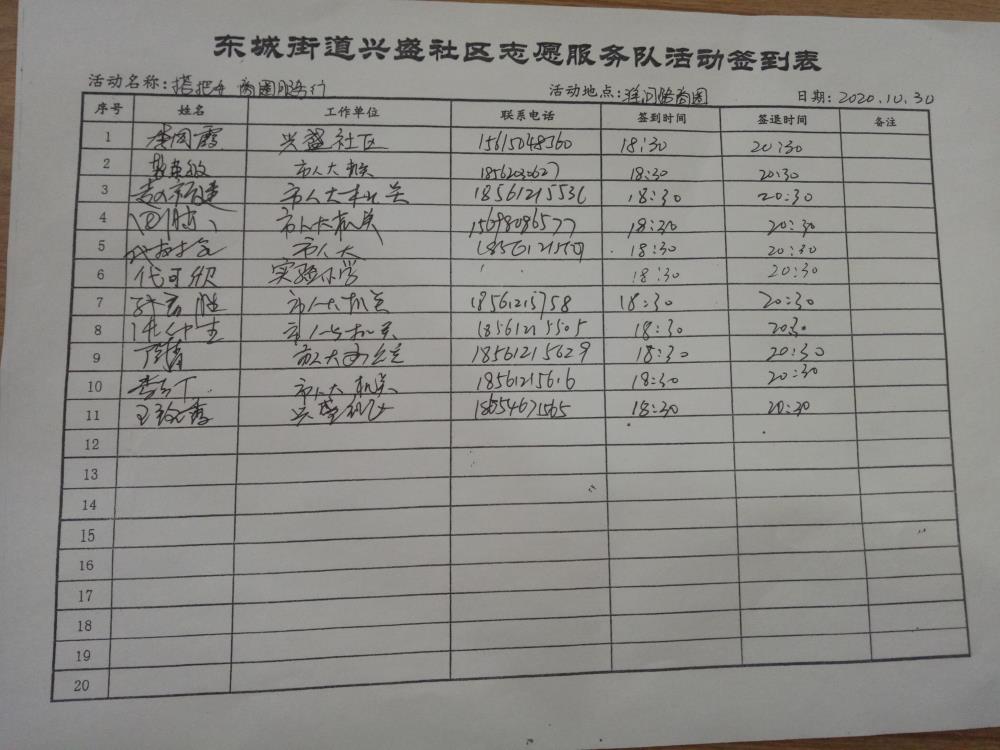 东城街道兴盛社区志愿服务队活动签到表
活动名称:搭把手 商圈服务行 活动地点: 商圈 日期: 2020.10.30
序号 姓名 工作单位 联系电话 签到时间 签退时间 备注
1 李国霞 兴盛社区 15615048360 18:30 20:30
2 市人大机关 18562030627 18:30 20:30
3 市人大机关 18561215536 18:30 20:30
4 市人大机关 15698086577 18:30 20:30
5 市人大 18:30 20:30
6 代可欣 实验小学 18:30 20:30
7 市人大机关 1856125758 18:30 20:30
8 市人大机关 18561215505 18:30 2030
9 市人大机关 18561215629 18:30 20:30
10 市人大机关 18561215616 18:30 20:30
11 兴盛社区 18654671565 18:30 20:30
12
13
14
15
16
17
18
19
20